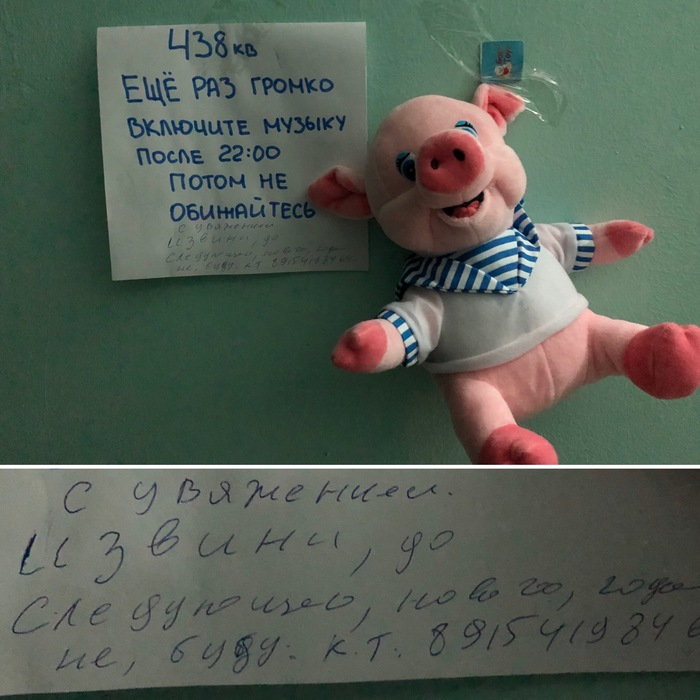 438 кв
ЕЩЁ РАЗ ГРОМКО
ВКЛЮЧИТЕ МУЗЫКУ
ПОСЛЕ 22:00
ПОТОМ НЕ
ОБИЖАЙТЕСЬ
с увяжением
Извини, до
Следующего, нового, 
не, буду. к.т. 891541984
с увяжением.
Извини, до
Следующего, нового, года
не, буду. к.т. 8915419846